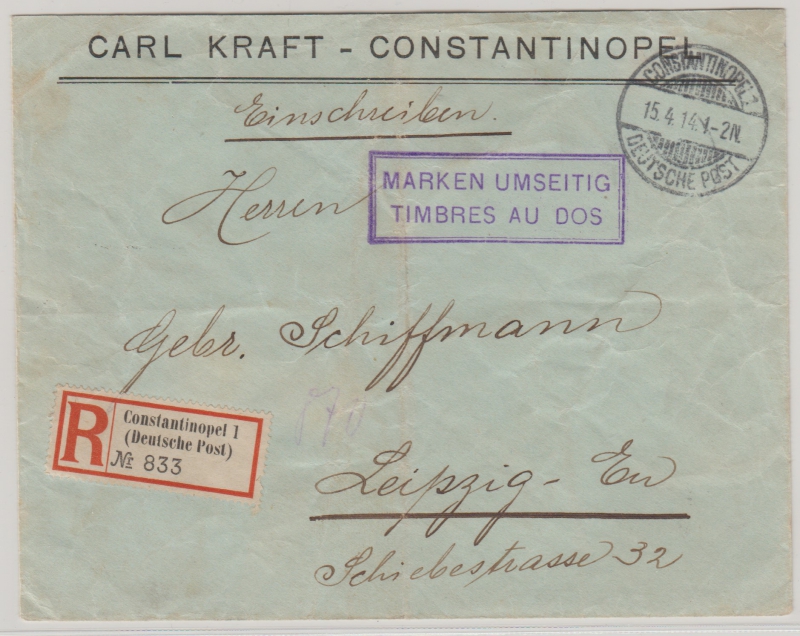 CARL KRAFT - CONSTANTINOPEL
Einschreiben.
CONSTANTINOPEL 1
15.4.14.1-2N.
DEUTSCHE POST
MARKEN UMSEITIG
TIMBRES AU DOS
Herren
Gebr. Schiffmann
R
Constantinopel 1
(Deutsche Post)
№ 833
Leipzig - Eu
Schiebestrasse 32